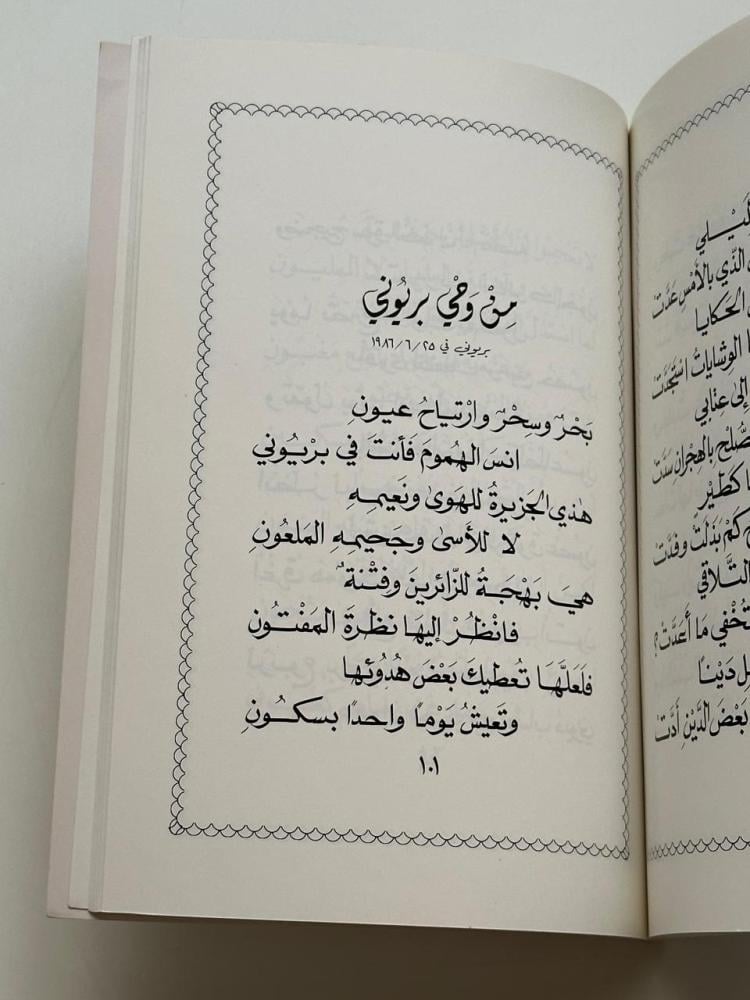 مِنْ وَحْيِ بريُوني
بريوني في ٢٥/ ٦/ ١٩٨٦
بَحْرٌ وسِحْرٌ وارْتياحُ عيونِ
انسَ الهمومَ فَأنتَ في بريُوني
هٰذي الجَزيرةُ للهَوىٰ ونَعيمِهِ
لا للأسىٰ وجَحيمِهِ المَلعُونِ
هيَ بَهْجَةٌ للزّائرينَ وفِتْنةٌ
فانْظُرْ إليهَا نظرَةَ المَفْتُونِ
فلَعلَّهَا تُعطيكَ بَعْضَ هُدُوئهَا
وتَعيشُ يَوْماً واحداً بسكُونِ
١٠١
لَيْلي
الّذي بالأمْسِ عَدَّتْ
الحكايا
الوِشاياتُ اسْتَجدَّتْ
إلىٰ عِتابي
بالهِجْرانِ سَدَّتْ
كَطَيْرٍ
كَمْ بَذلتْ وفَدَّتْ
التَّلاقي
تُخْفي مَا أعَدَّتْ؟
دَيْناً
بَعْضَ الدَّيْنِ أدَّتْ